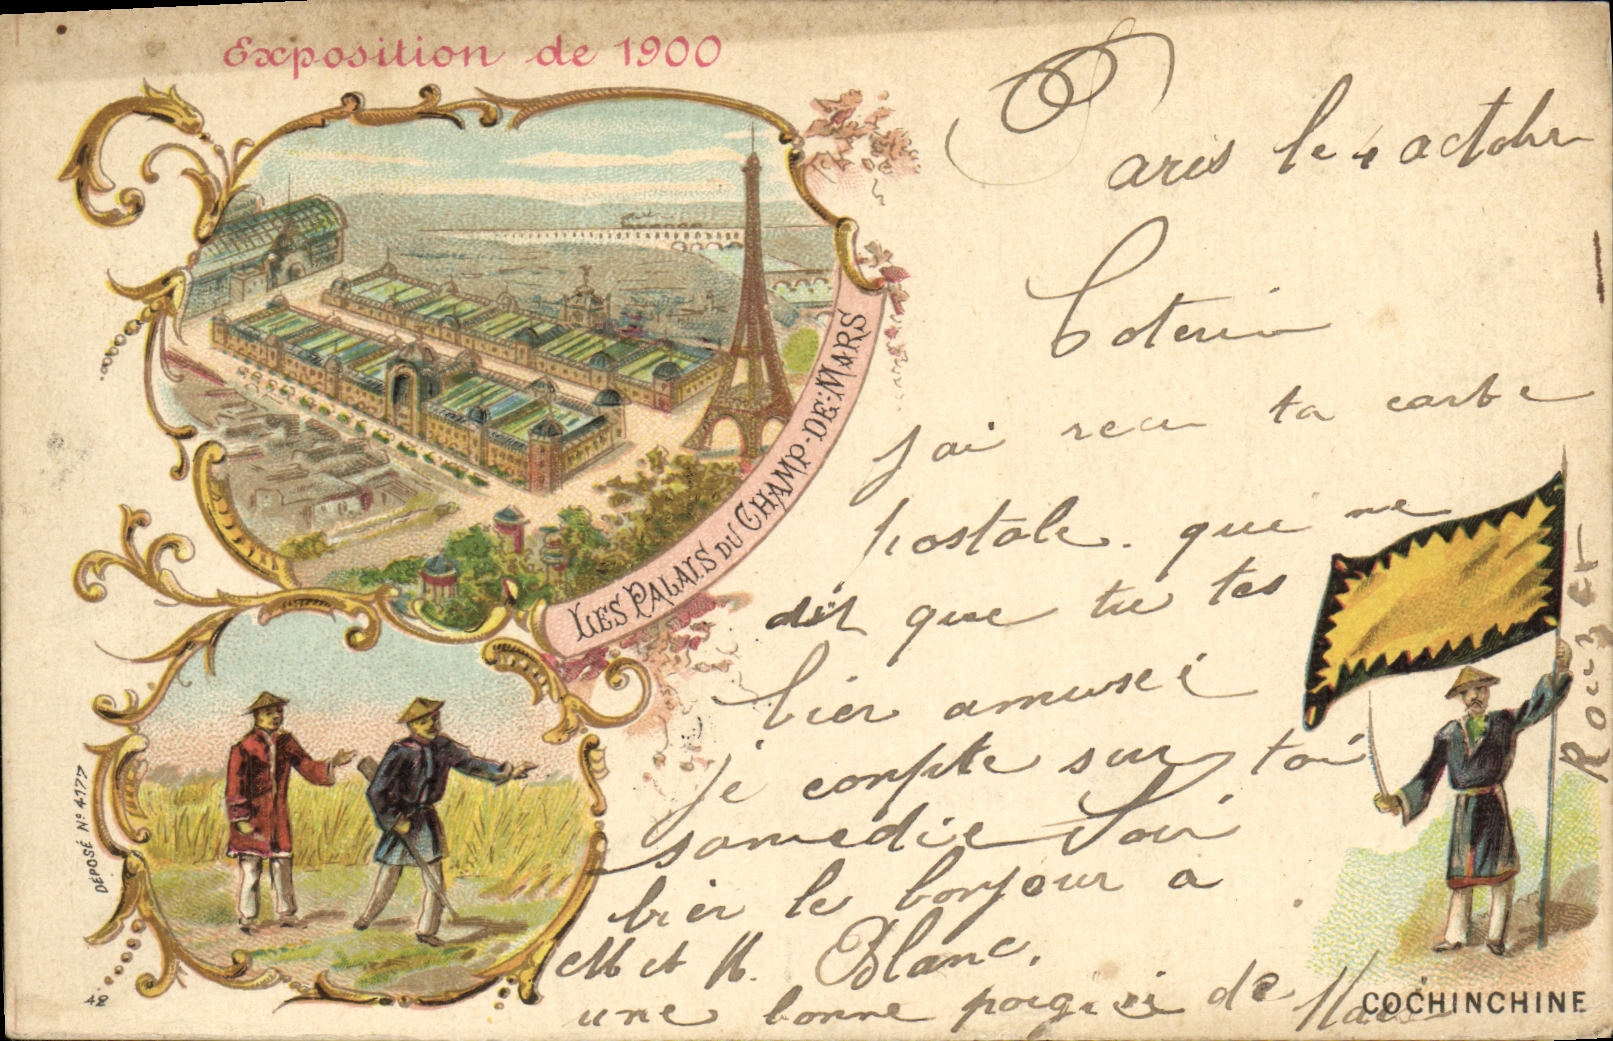 Exposition de 1900
LES PALAIS DU CHAMP-DE-MARS
DÉPOSÉ Nº 4177
42
COCHINCHINE
Paris le 4 actobre
j'ai recu ta carte
postale. que me
dit que tu tes
bien amusé
je conpte sur toi
samedie Soir
bien le bonjour a
M et M. Blanc.
une bonne poigné de